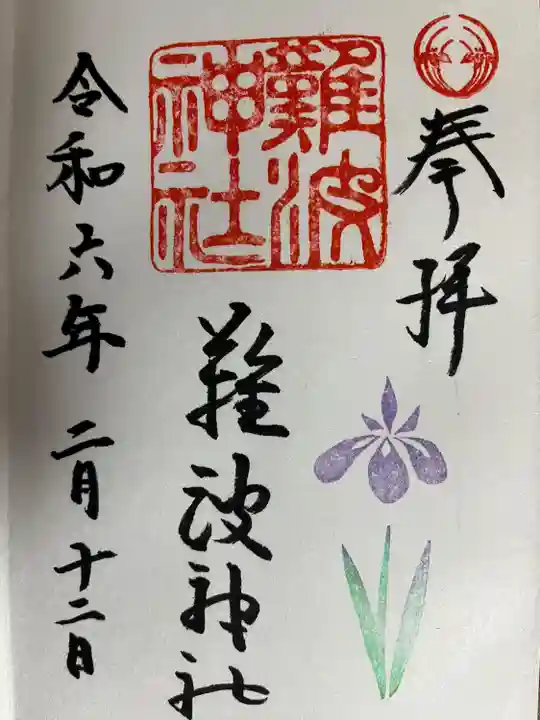 奉拝
難波
神社
難波神社
令和六年 二月十二日